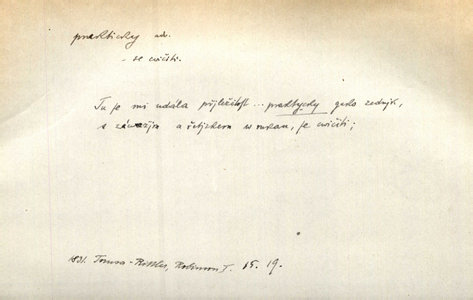 prakticky adv.
- se cvičiti.
Tu se mi udála příležitost ... praktycky gako zedník,
s závažjm a řetjzkem w rukau, se cwičiti;
1831. Tomsa - Robinson I. 15. 19.